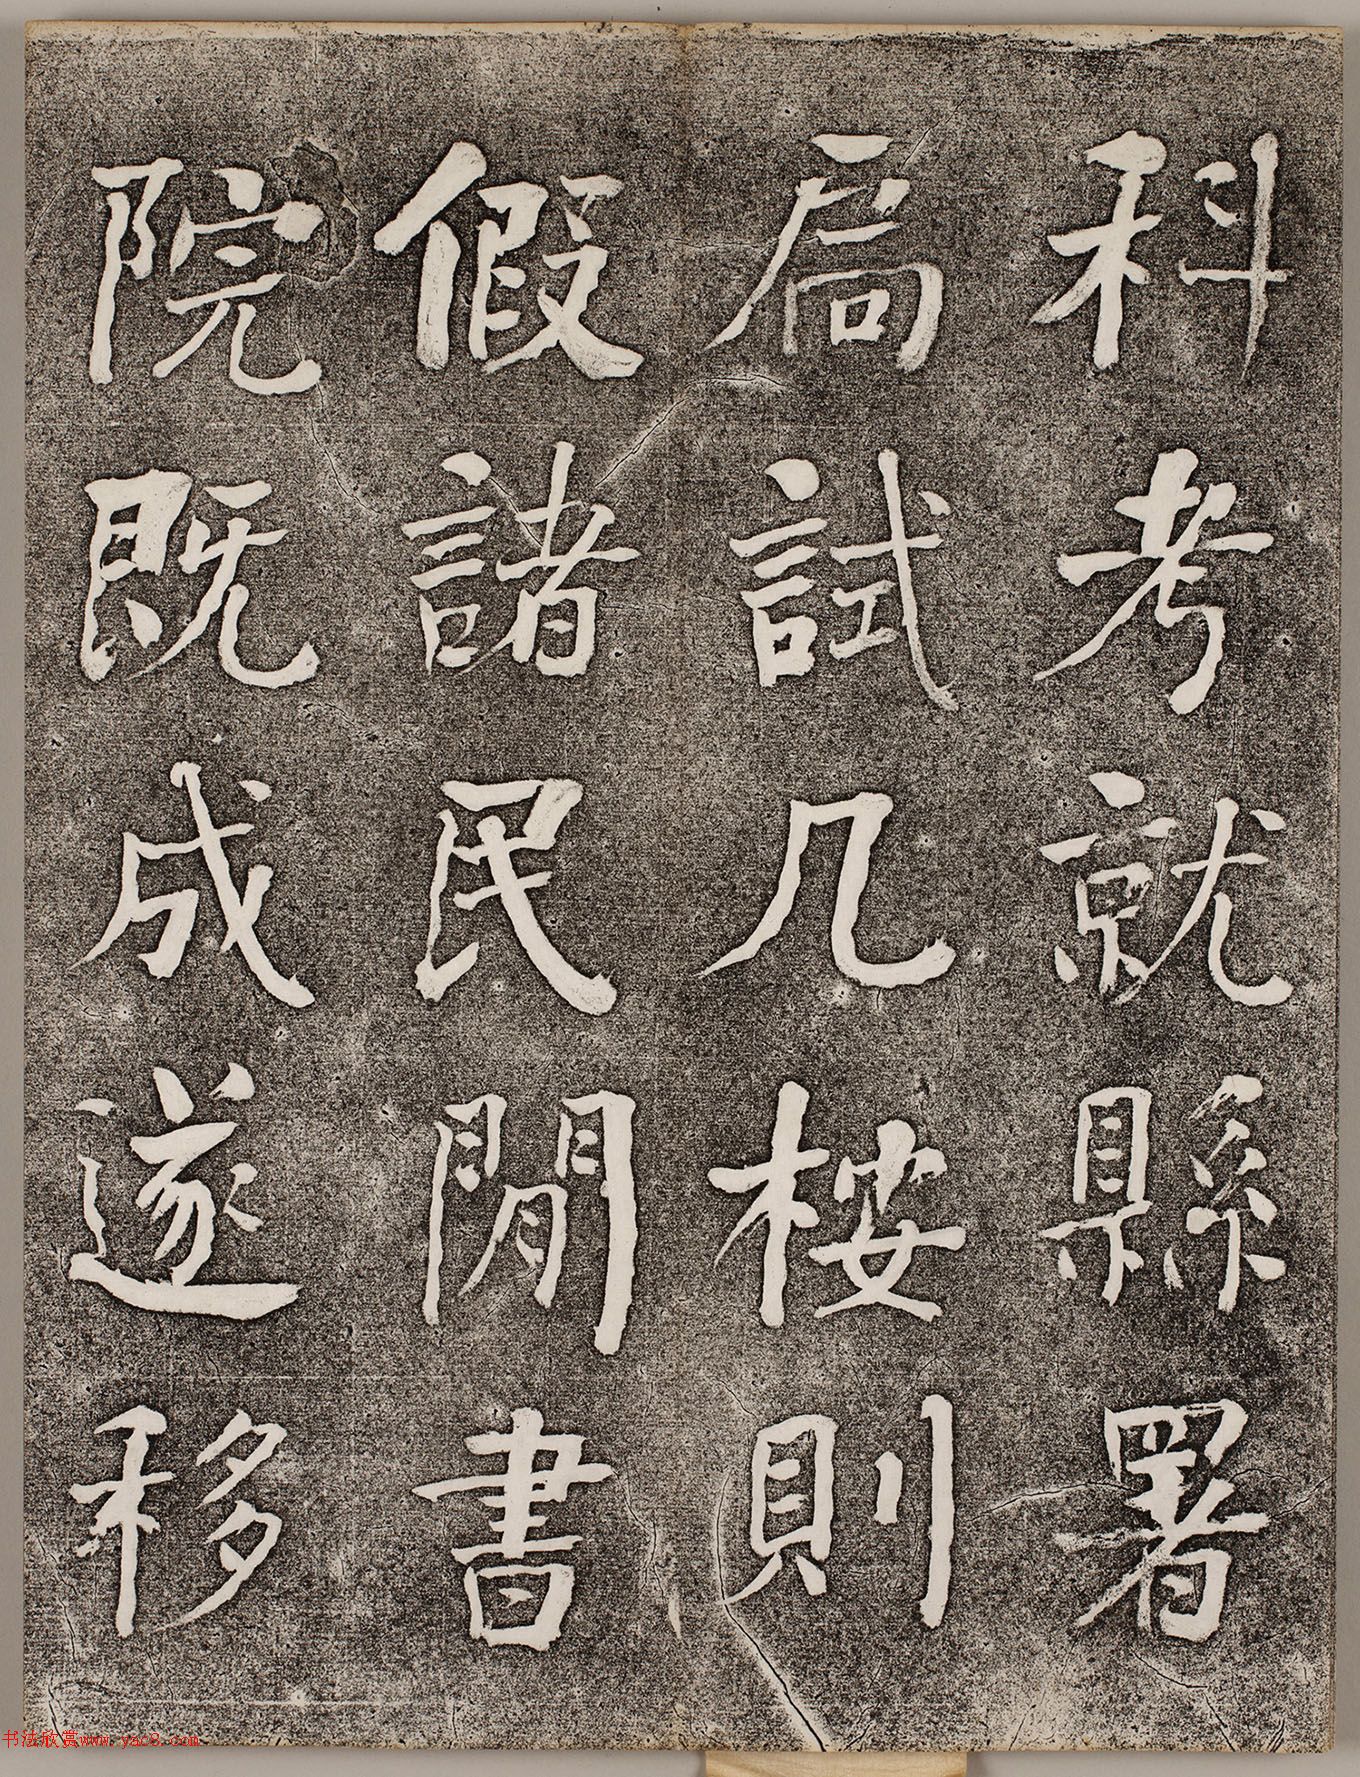 科考就縣署
扃試几桉則
假諸民閒書
院既成遂移
书法欣赏www.yac8.com